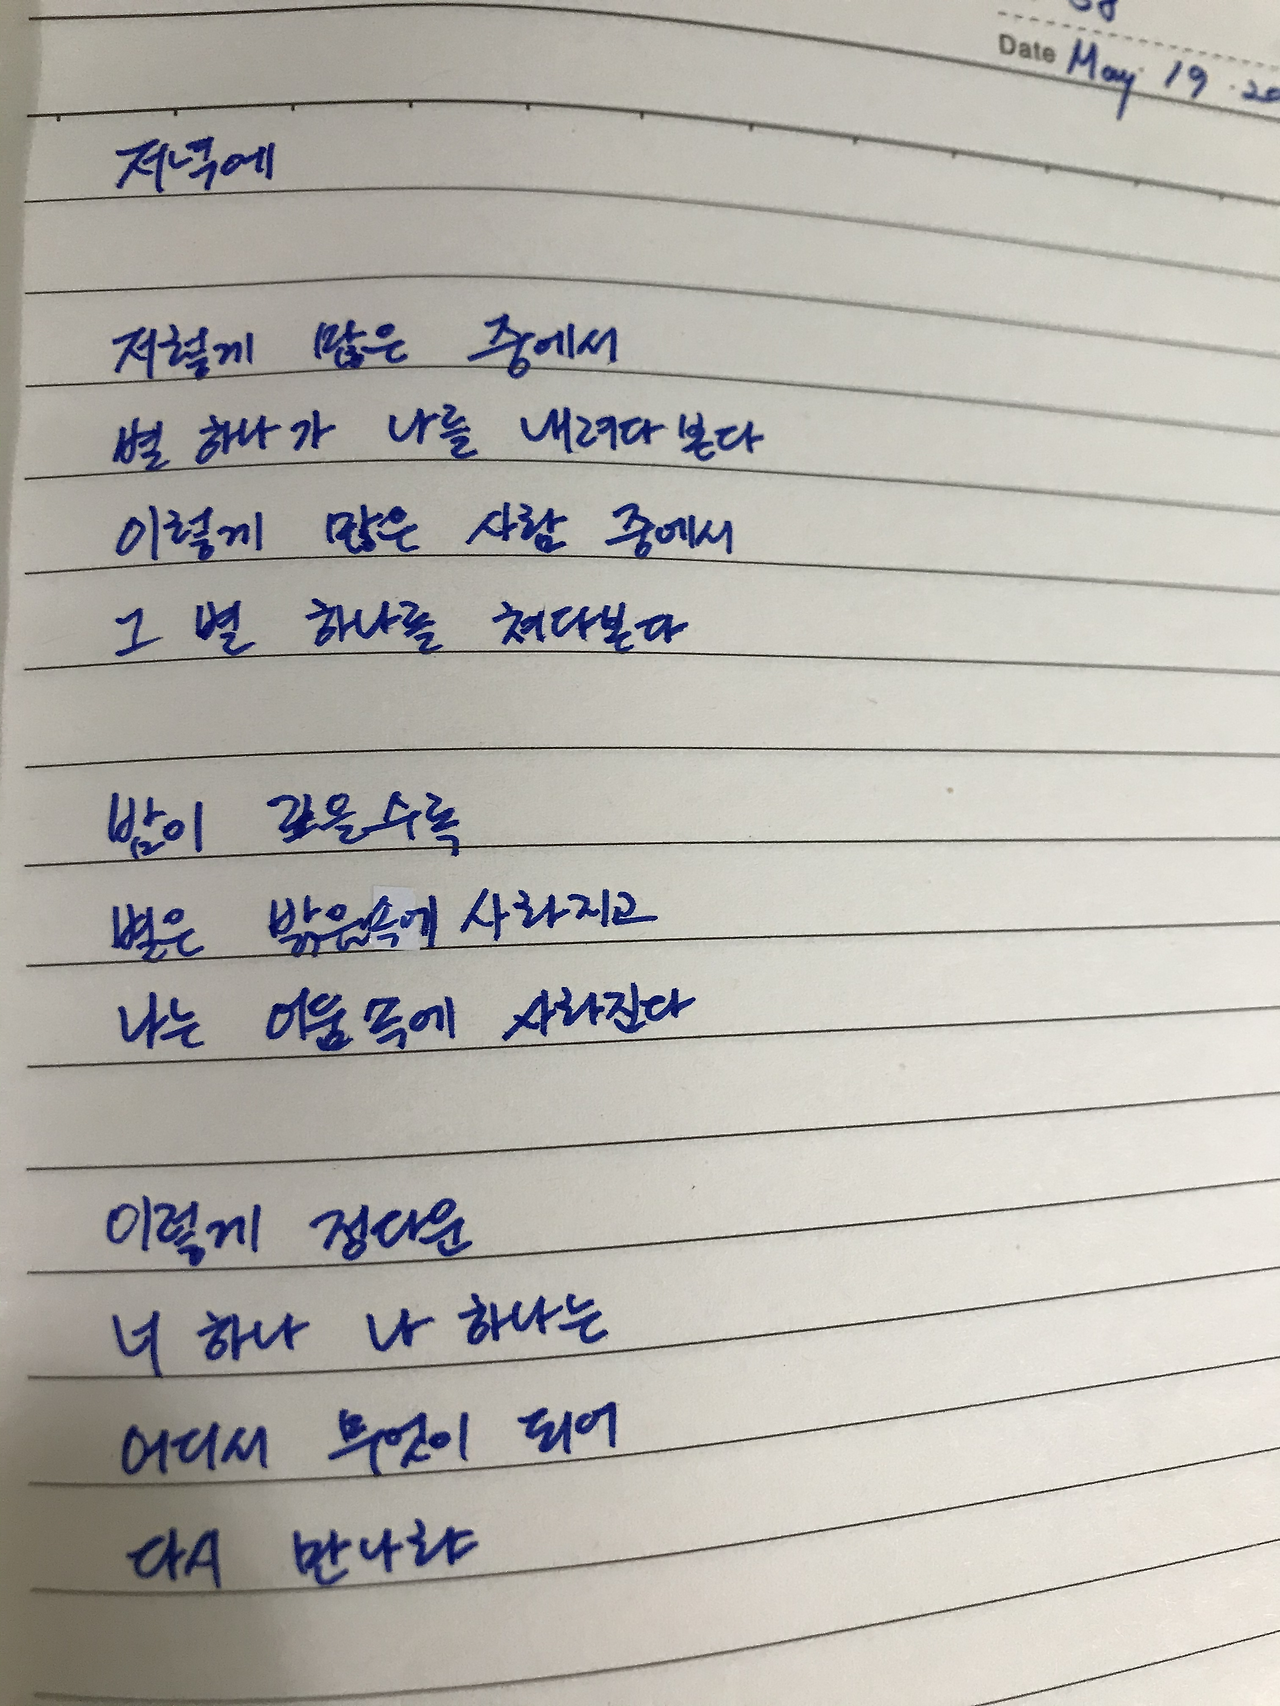 Date May 19 20
저녁에
저렇게 많은 중에서
별 하나가 나를 내려다 본다
이렇게 많은 사람 중에서
그 별 하나를 쳐다본다
밤이 깊을수록
별은 밝음속에 사라지고
나는 어둠 속에 사라진다
이렇게 정다운
너 하나 나 하나는
어디서 무엇이 되어
다시 만나랴